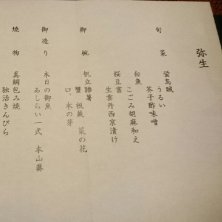 弥生
旬菜
蛍烏賊
うるい
芥子酢味噌
白魚
こごみ胡麻和え
桜豆腐
生雲丹西京漬け
御椀
帆立㮈薯
蟹 桜麩 菜の花
口 木の芽
御造り
本日の御魚
あしらい一式 本山葵
焼物
真鯛包み焼
独活きんぴら